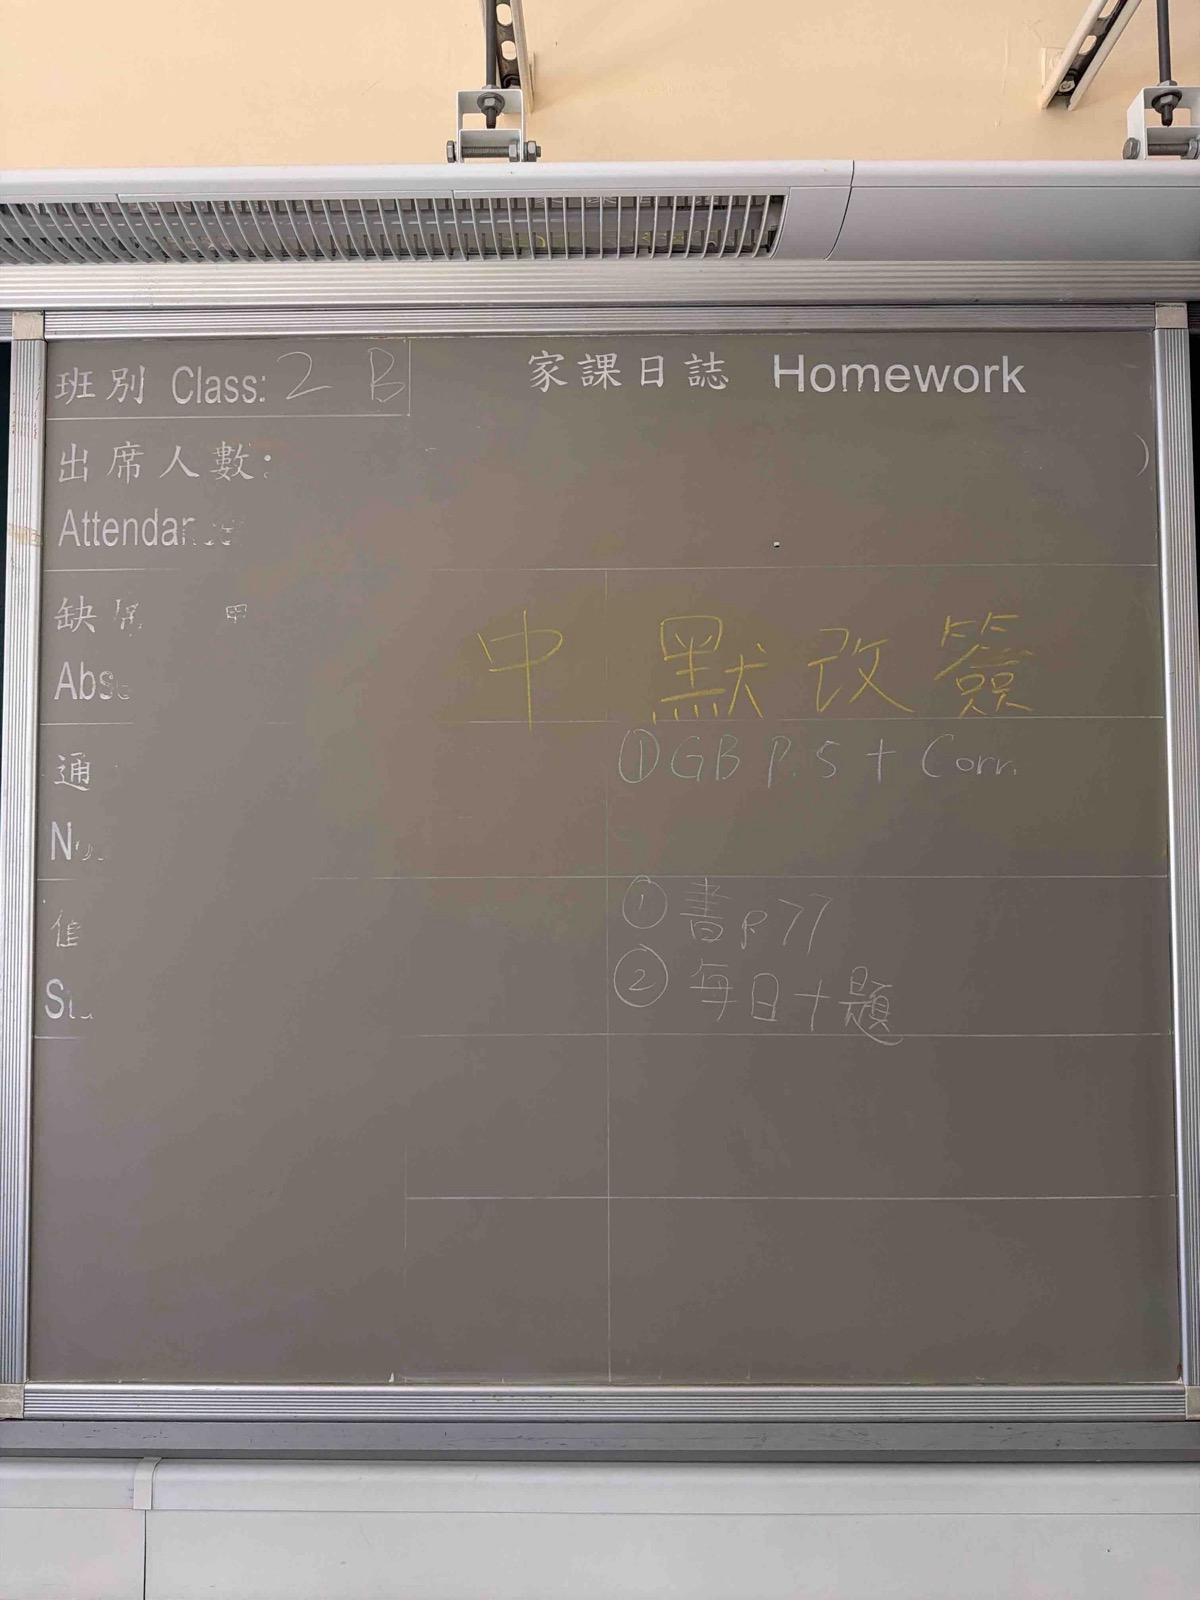 班別 Class: 2 B
家課日誌 Homework
出席人數:
Attendan
缺席
Abs
中 默改簽
通
① GB P.5 + Corr.
N
① 書 p77
② 每日十題